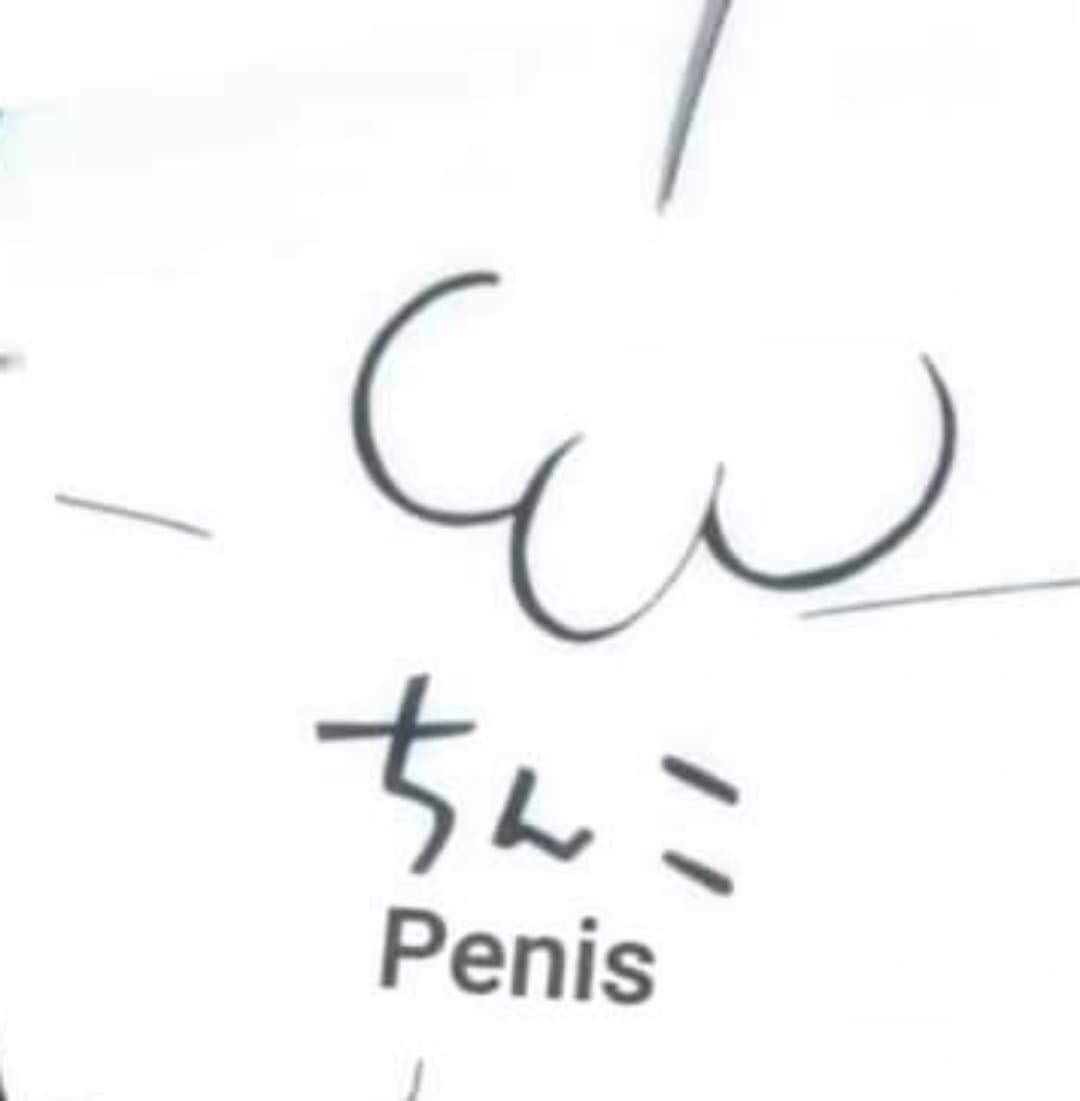 ちんこ
Penis